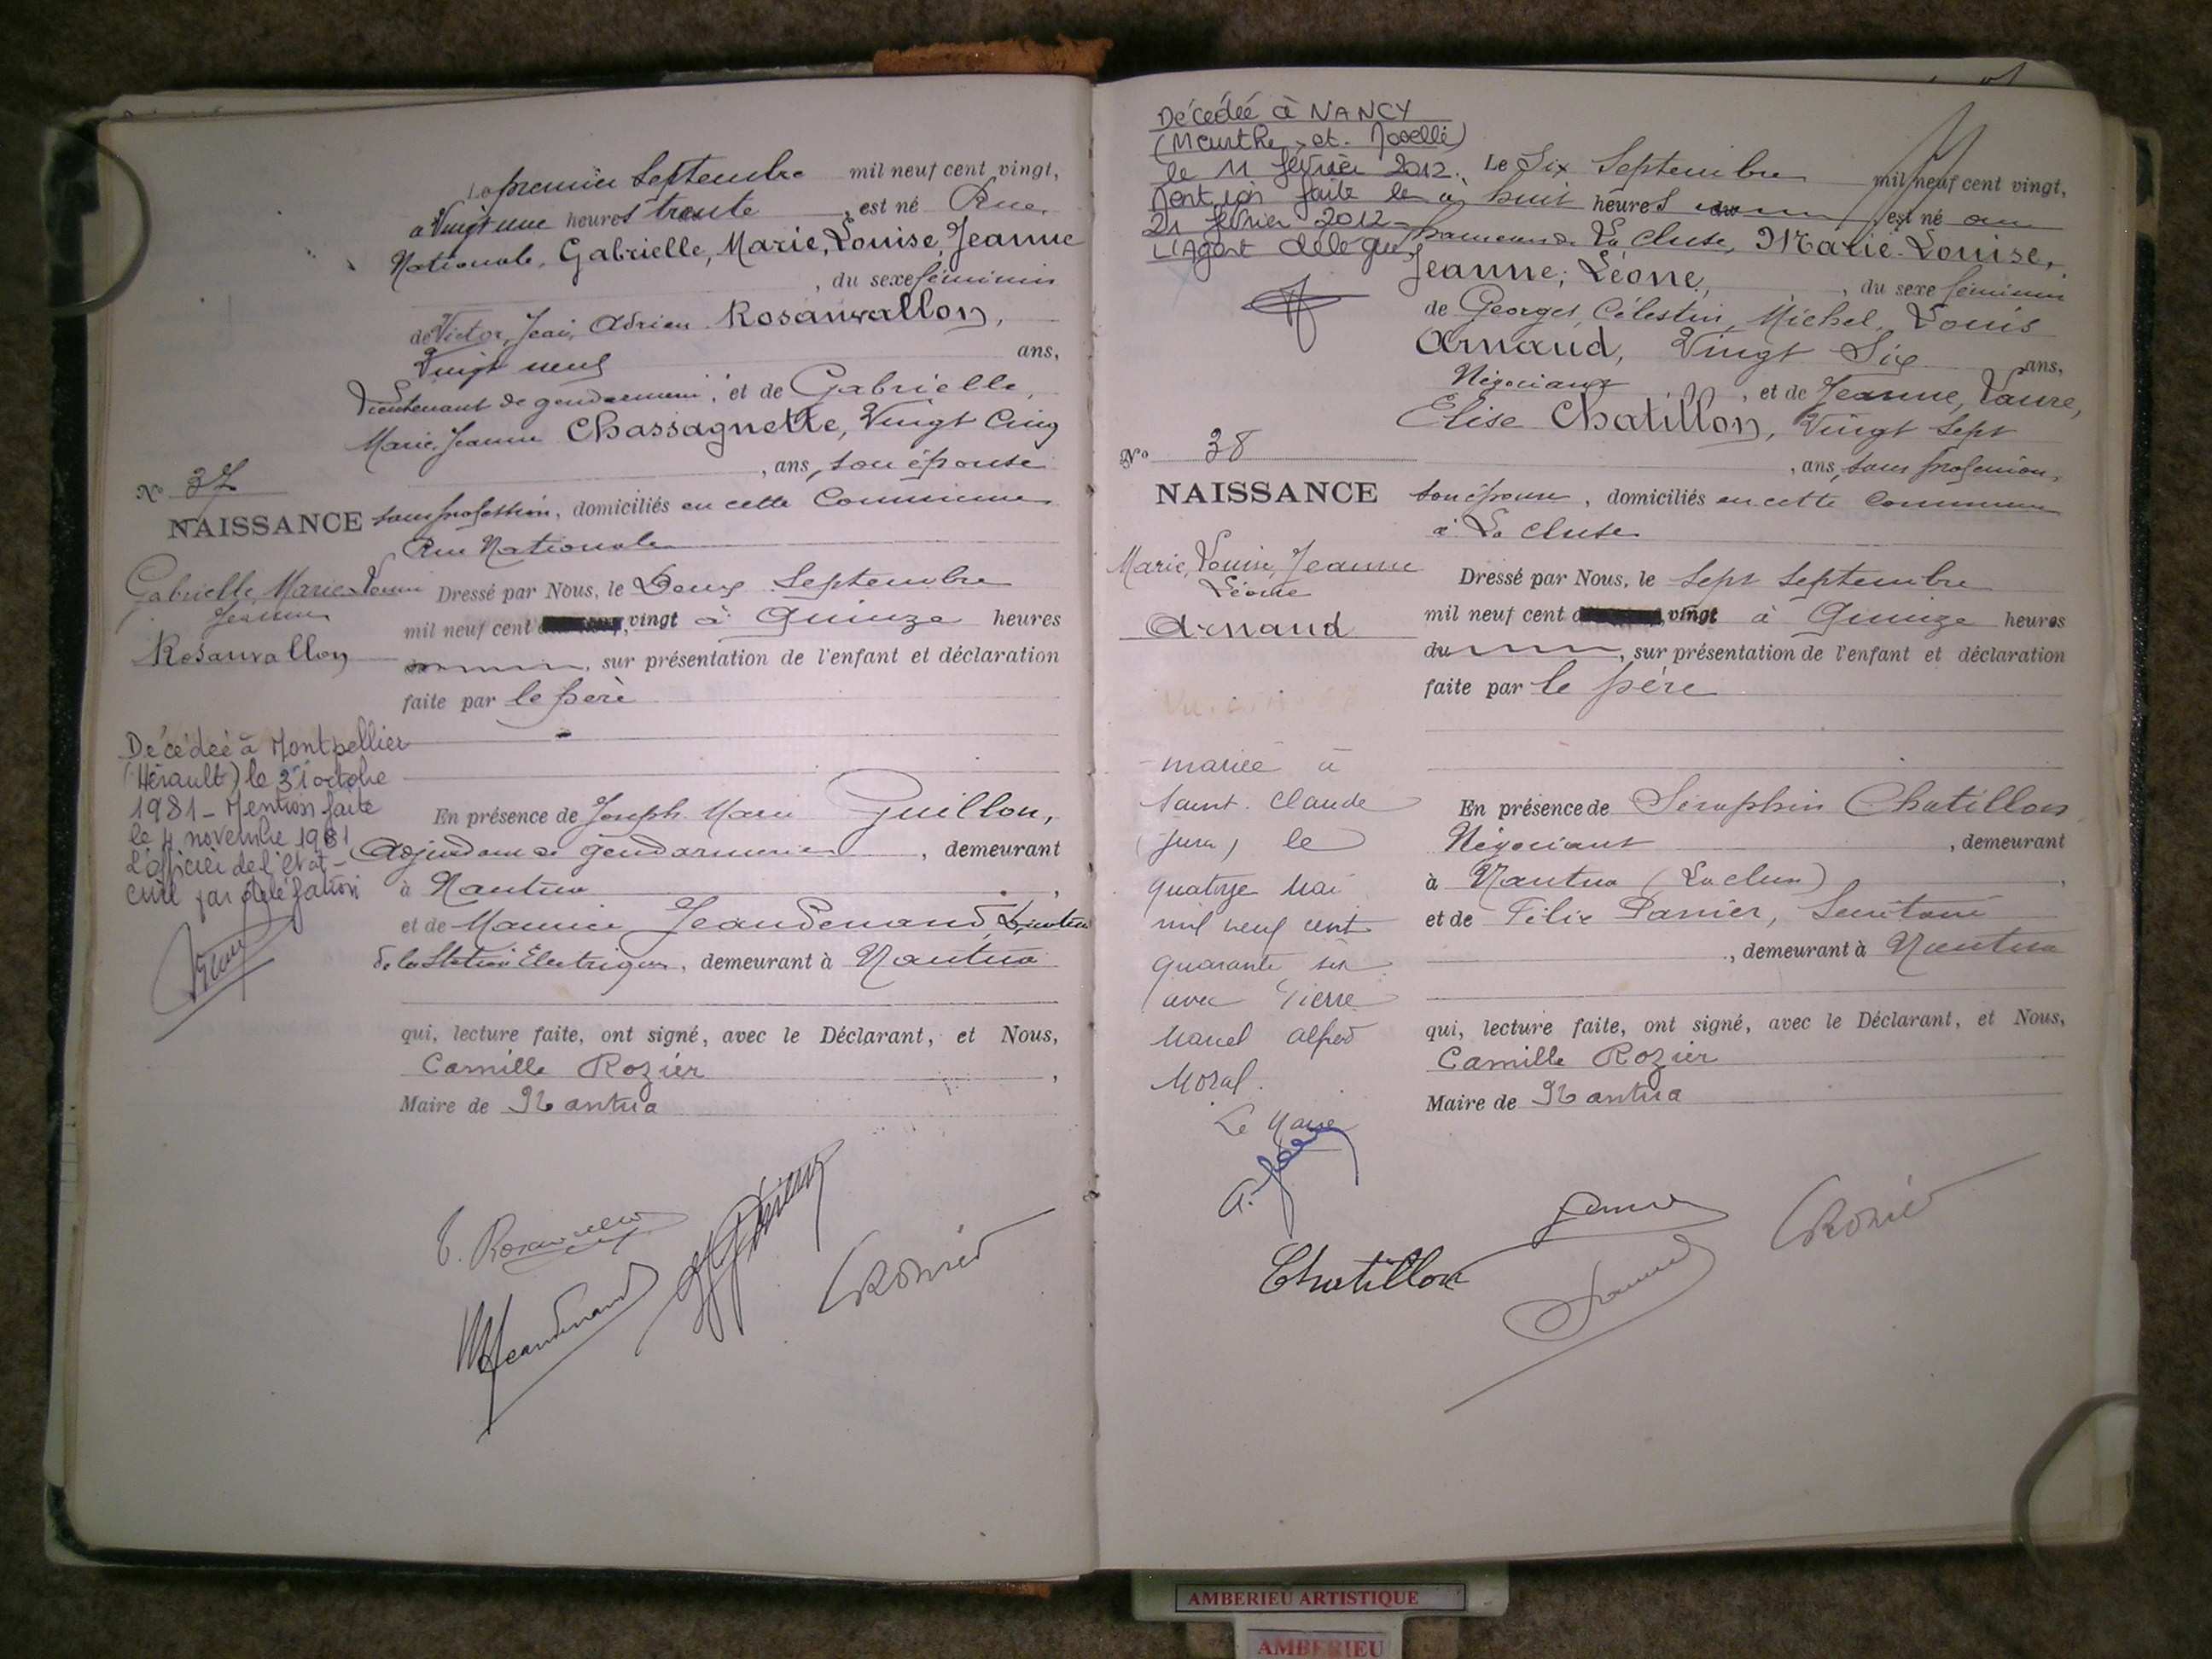 Le premier Septembre mil neuf cent vingt,
à Vingt une heures trente, est né Rue
Nationale, Gabrielle, Marie, Louise, Jeanne
, du sexe féminin
de Victor, Jean, Adrien Rosanvallon,
Vingt neuf ans,
Lieutenant de gendarmerie, et de Gabrielle,
Marie Jeanne Chassagnette, Vingt Cinq
, ans, son épouse
No 37
NAISSANCE
sans profession, domiciliés en cette Commune
Rue Nationale
Gabrielle Marie Louise
Jeanne
Rosanvallon
Dressé par Nous, le Deux Septembre
mil neuf cent vingt à Quinze heures
, sur présentation de l'enfant et déclaration
faite par le père
Décédée à Montpellier
(Hérault) le 31 octobre
1981 - Mention faite
le 4 novembre 1981
L'officier de l'état-
civil par délégation
En présence de Joseph Marie Guillon,
Adjudant de gendarmerie, demeurant
à Nantua,
et de Maurice Jeandenand, Directeur
de la Station Electrique, demeurant à Nantua
qui, lecture faite, ont signé, avec le Déclarant, et Nous,
Camille Rozier,
Maire de Nantua
Décédée à NANCY
(Meurthe-et-Moselle)
le 11 février 2012.
Mention faite le
21 février 2012
L'Agent délégué,
Le Six Septembre mil neuf cent vingt,
à huit heures est né au
hameau de La Cluse, Marie-Louise,
Jeanne, Léone, du sexe féminin
de Georges, Célestin, Michel, Louis
Arnaud, Vingt Six ans,
Négociant, et de Jeanne, Laure,
Elise Chatillon, Vingt Sept
, ans, sans profession,
No 38
NAISSANCE
son épouse, domiciliés en cette Commune
à La Cluse
Marie, Louise, Jeanne
Léone
Arnaud
Dressé par Nous, le Sept Septembre
mil neuf cent vingt à Quinze heures
du, sur présentation de l'enfant et déclaration
faite par le père
mariée à
Saint-Claude
(Jura) le
quatorze Mai
mil neuf cent
quarante six
avec Pierre
Marcel Alfred
Moral.
Le Maire
En présence de Séraphin Chatillon
Négociant, demeurant
à Nantua (La Cluse),
et de Félix Panier, Secrétaire
, demeurant à Nantua
qui, lecture faite, ont signé, avec le Déclarant, et Nous,
Camille Rozier
Maire de Nantua
Chatillon
AMBERIEU ARTISTIQUE
AMBERIEU